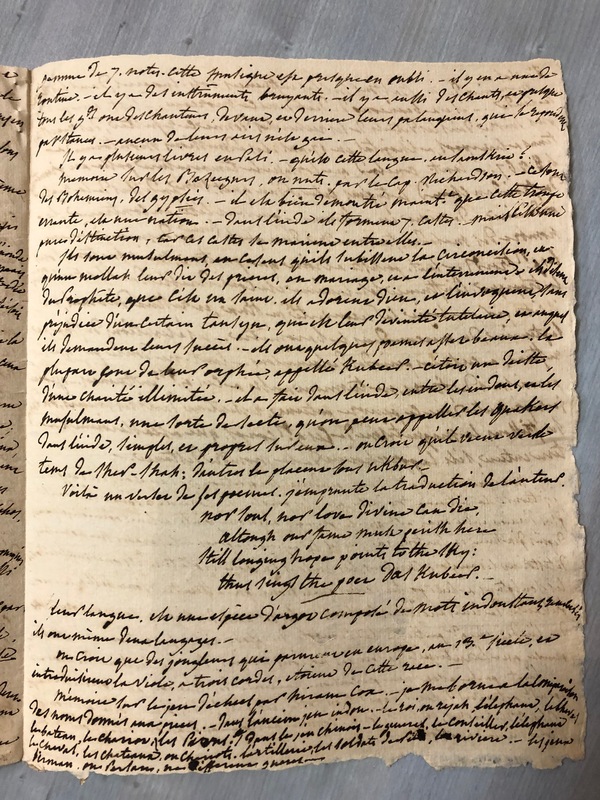 gamme de 7. notes. cette musique est presque en oubli. – il y en a une de
routine. – il y a des instruments bruyants. – il y a aussi des chants, et presque
tous les gds ont des chanteurs, devant, et derrière leurs palanquins, que se répondent
par stances. – aucun de leurs airs n'est gai. –
Il y a plusieurs livres en Pali. – qu'est cette langue, en sanskrit ?
mémoire sur les Bazeegurs, ou nuts. par le Cap. Richardson. –
des Bohémiens, des gypsies. – il est bien démontré maintt. que cette troupe
errante, est une nation. – dans l'inde ils forment 7. castes. mais c'est une
pure distinction, car ces castes se marient entre elles. –
Ils sont musulmans, en ce sens qu'ils subissent la circoncision, et
qu'un mollah leur dit des prières, en mariage, et à l'enterrement.
du Prophète, que c'est un saint. ils adorent dieu, et l'invoquent sans
préjudice d'un certain tansyn, qui est leur divinité tutélaire, et auquel
ils demandent leurs succès. – ils ont quelques poèmes assez beaux. la
plupart sont de leur orphée, appellé Kubeer. – c'étoit un déiste
d'une charité illimitée. – il a fait dans l'inde, entre les indous, et les
musulmans, une sorte de secte, qu'on peut appeller les quakers
dans l'inde, simples, et propres sur eux. – on croit qu'il vécut vers le
tems de Sher-Shah; d'autres le placent sous Akbar. –
Voilà un verset de ses poèmes. j'emprunte la traduction de l'auteur.
nor soul, nor love divine can die,
altough our fame must perish here
still longing hope points to the sky:
thus sings the poet das Kubeer. –
leur langue, est une espèce d'argot composé de mots indoustans
ils ont même deux langages. –
on croit que des jongleurs qui parurent en europe, au 13.me siècle, et
introduisirent la viole, a trois cordes, étoient de cette race. –
mémoire sur le jeu d'échecs par hiram Cox. – je me borne a la
des noms donnés aux pièces. – dans l'ancien jeu indou. – le roi, ou rajah, l'éléphant, le cheval,
le bateau, le chariot, dans le jeu chinois. – le conseiller, l'éléphant
le cheval, les chateaux, ou chariots. l'artillerie, les soldats la rivière. – les jeux
birman. ou Persans, ne diffèrent guères –